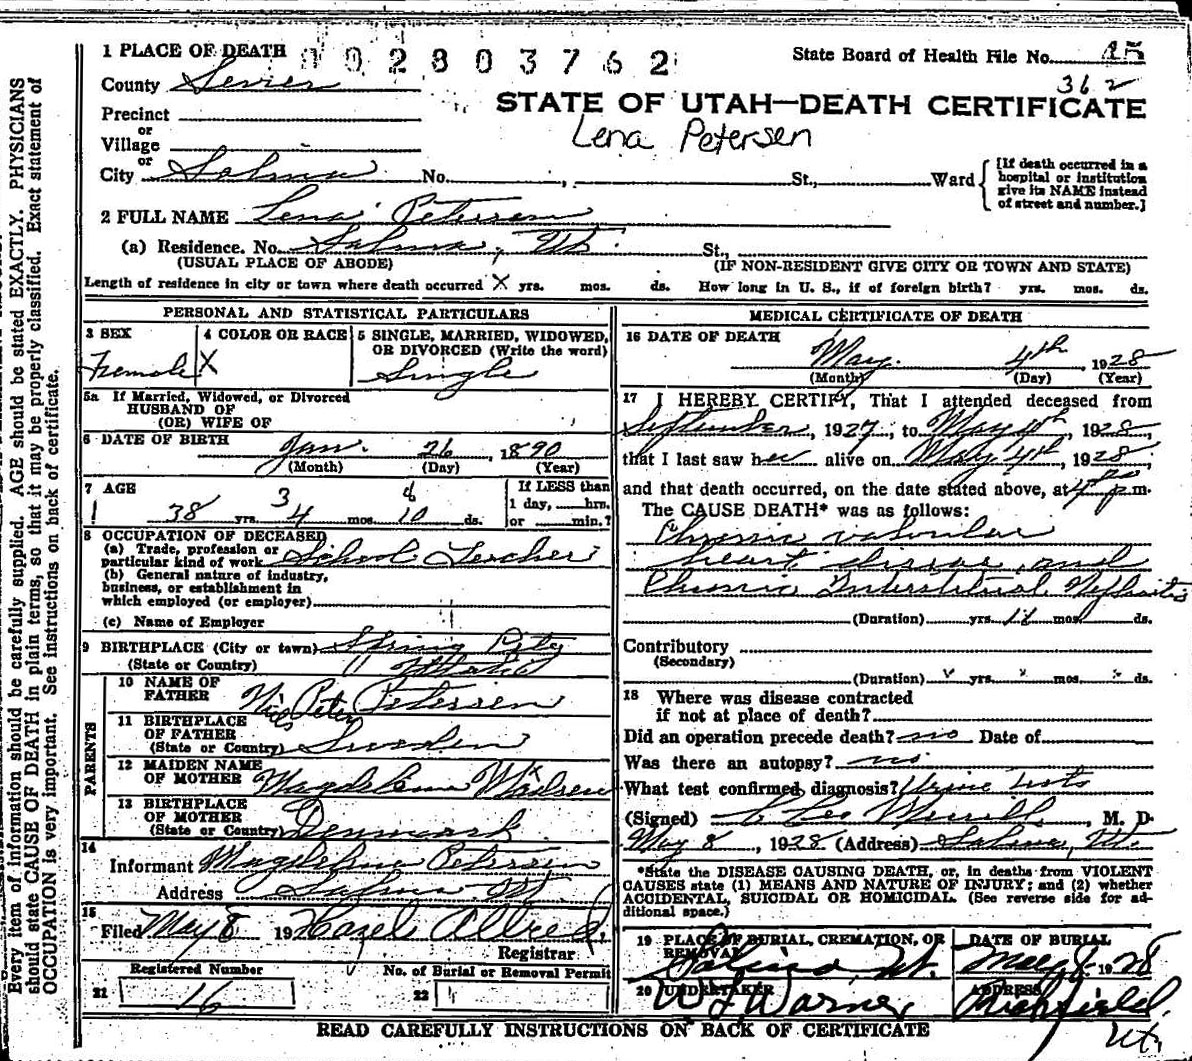 1 PLACE OF DEATH 0 0 2 8 0 3 7 6 2 State Board of Health File No. 45
362
County Sevier
STATE OF UTAH—DEATH CERTIFICATE
Precinct
or
Village
Lena Petersen
or
City Salina No. , St., Ward
[If death occurred in a
hospital or institution
give its NAME instead
of street and number.]
2 FULL NAME Lena Petersen
(a) Residence. No. Salina, Ut. St.,
(USUAL PLACE OF ABODE) (IF NON-RESIDENT GIVE CITY OR TOWN AND STATE)
Length of residence in city or town where death occurred X yrs. mos. ds. How long in U. S., if of foreign birth? yrs. mos. ds.
PERSONAL AND STATISTICAL PARTICULARS
3 SEX
Female
4 COLOR OR RACE
X
5 SINGLE, MARRIED, WIDOWED,
OR DIVORCED (Write the word)
Single
5a If Married, Widowed, or Divorced
HUSBAND OF
(OR) WIFE OF
6 DATE OF BIRTH Jan. 26, 1890
(Month) (Day) (Year)
7 AGE
3 8
38 yrs. 4 mos. 10 ds.
If LESS than
1 day, hrs.
or min.?
8 OCCUPATION OF DECEASED
(a) Trade, profession or
particular kind of work School Teacher
(b) General nature of industry,
business, or establishment in
which employed (or employer)
(c) Name of Employer
9 BIRTHPLACE (City or town) Spring City
(State or Country) Utah
PARENTS
10 NAME OF
FATHER Niels Peter Petersen
11 BIRTHPLACE
OF FATHER
(State or Country) Sweden
12 MAIDEN NAME
OF MOTHER Magdalena Madsen
13 BIRTHPLACE
OF MOTHER
(State or Country) Denmark
14
Informant Magdalena Petersen
Address Salina Ut.
15
Filed May 8 19 Hazel Allred
Registrar
Registered Number
21 16
No. of Burial or Removal Permit
22
MEDICAL CERTIFICATE OF DEATH
16 DATE OF DEATH
May 4th, 1928
(Month) (Day) (Year)
17 I HEREBY CERTIFY, That I attended deceased from
September, 1927, to May 4th, 1928,
that I last saw her alive on May 4th, 1928,
and that death occurred, on the date stated above, at 4 p.m.
The CAUSE DEATH* was as follows:
Chronic valvular
heart disease and
Chronic Interstitial Nephritis
(Duration) yrs. 11 mos. ds.
Contributory
(Secondary)
(Duration) yrs. mos. ds.
18 Where was disease contracted
if not at place of death?
Did an operation precede death? no Date of
Was there an autopsy? no
What test confirmed diagnosis? Urine tests
(Signed) C Leo Merrill, M. D.
May 8, 1928 (Address) Salina, Ut.
*State the DISEASE CAUSING DEATH, or, in deaths from VIOLENT
CAUSES state (1) MEANS AND NATURE OF INJURY; and (2) whether
ACCIDENTAL, SUICIDAL OR HOMICIDAL. (See reverse side for ad-
ditional space.)
19 PLACE OF BURIAL, CREMATION, OR
REMOVAL
Salina Ut.
DATE OF BURIAL
May 8 1928
20 UNDERTAKER
W L Warner
ADDRESS
Richfield,
Ut.
READ CAREFULLY INSTRUCTIONS ON BACK OF CERTIFICATE
Every item of information should be carefully supplied. AGE should be stated EXACTLY. PHYSICIANS
should state CAUSE OF DEATH in plain terms, so that it may be properly classified. Exact statement of
OCCUPATION is very important. See instructions on back of certificate.